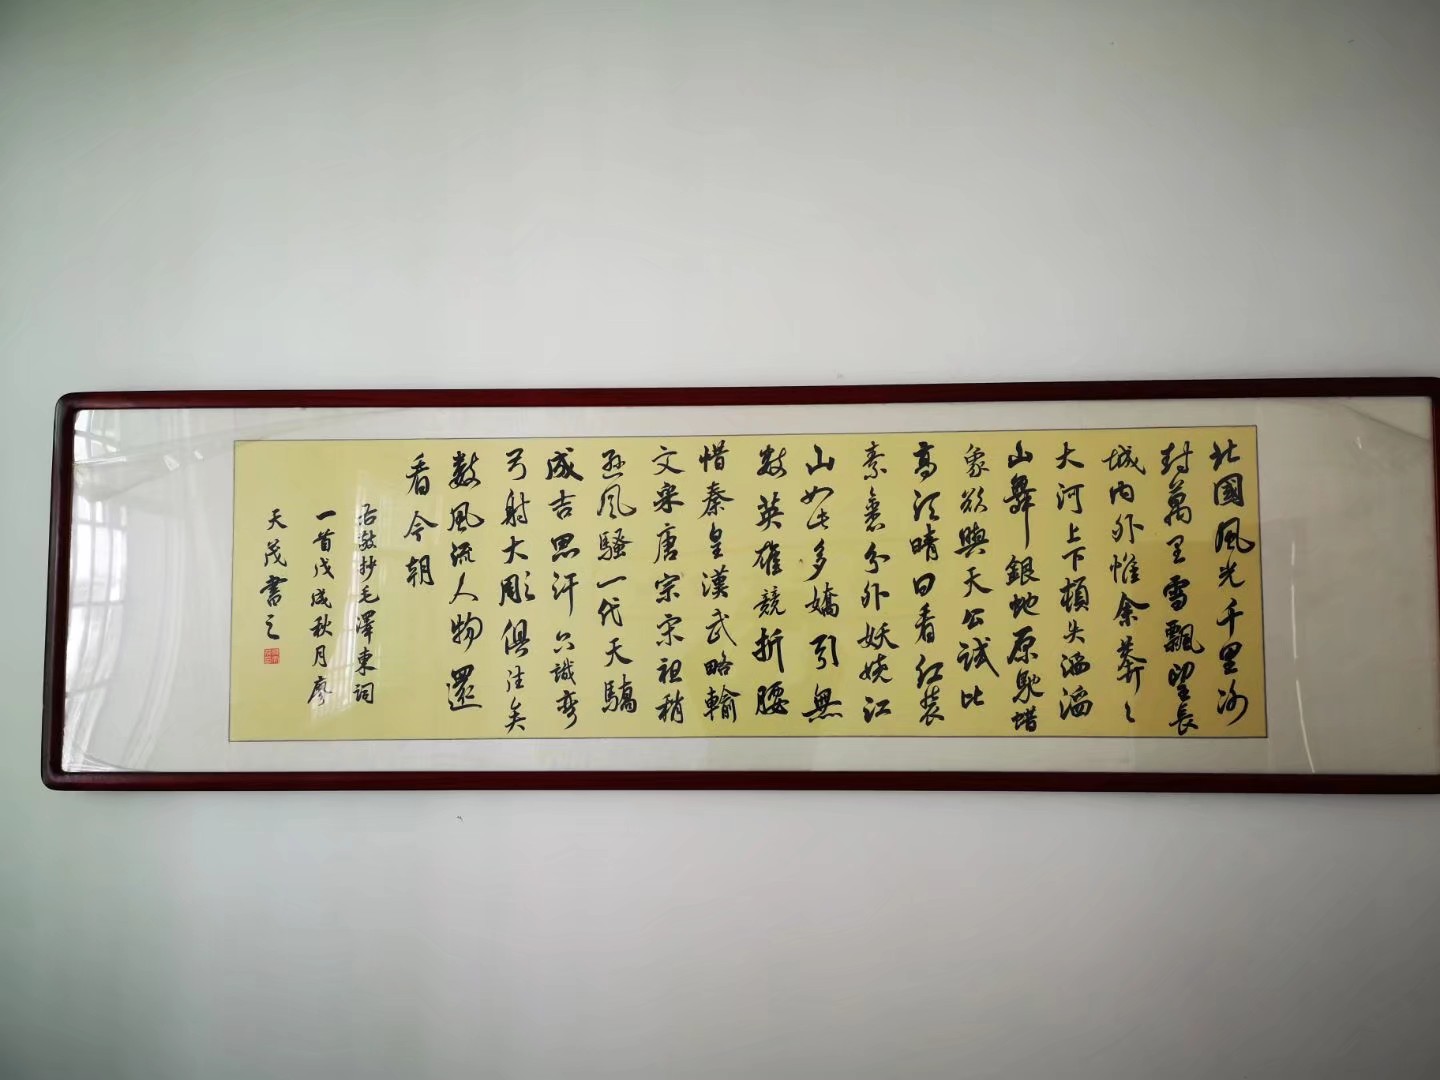 北國風光千里冰
封萬里雪飄望長
城内外惟余莽々
大河上下頓失滔滔
山舞銀蛇原馳蜡
象欲與天公試比
高須晴日看红装
素裹分外妖娆江
山如此多嬌引無
数英雄競折腰
惜秦皇漢武略輸
文采唐宗宋祖稍
遜風騷一代天驕
成吉思汗只識彎
弓射大彫俱往矣
數風流人物還
看今朝
右敬抄毛澤東詞
一首戊戌秋月廖
天茂書之